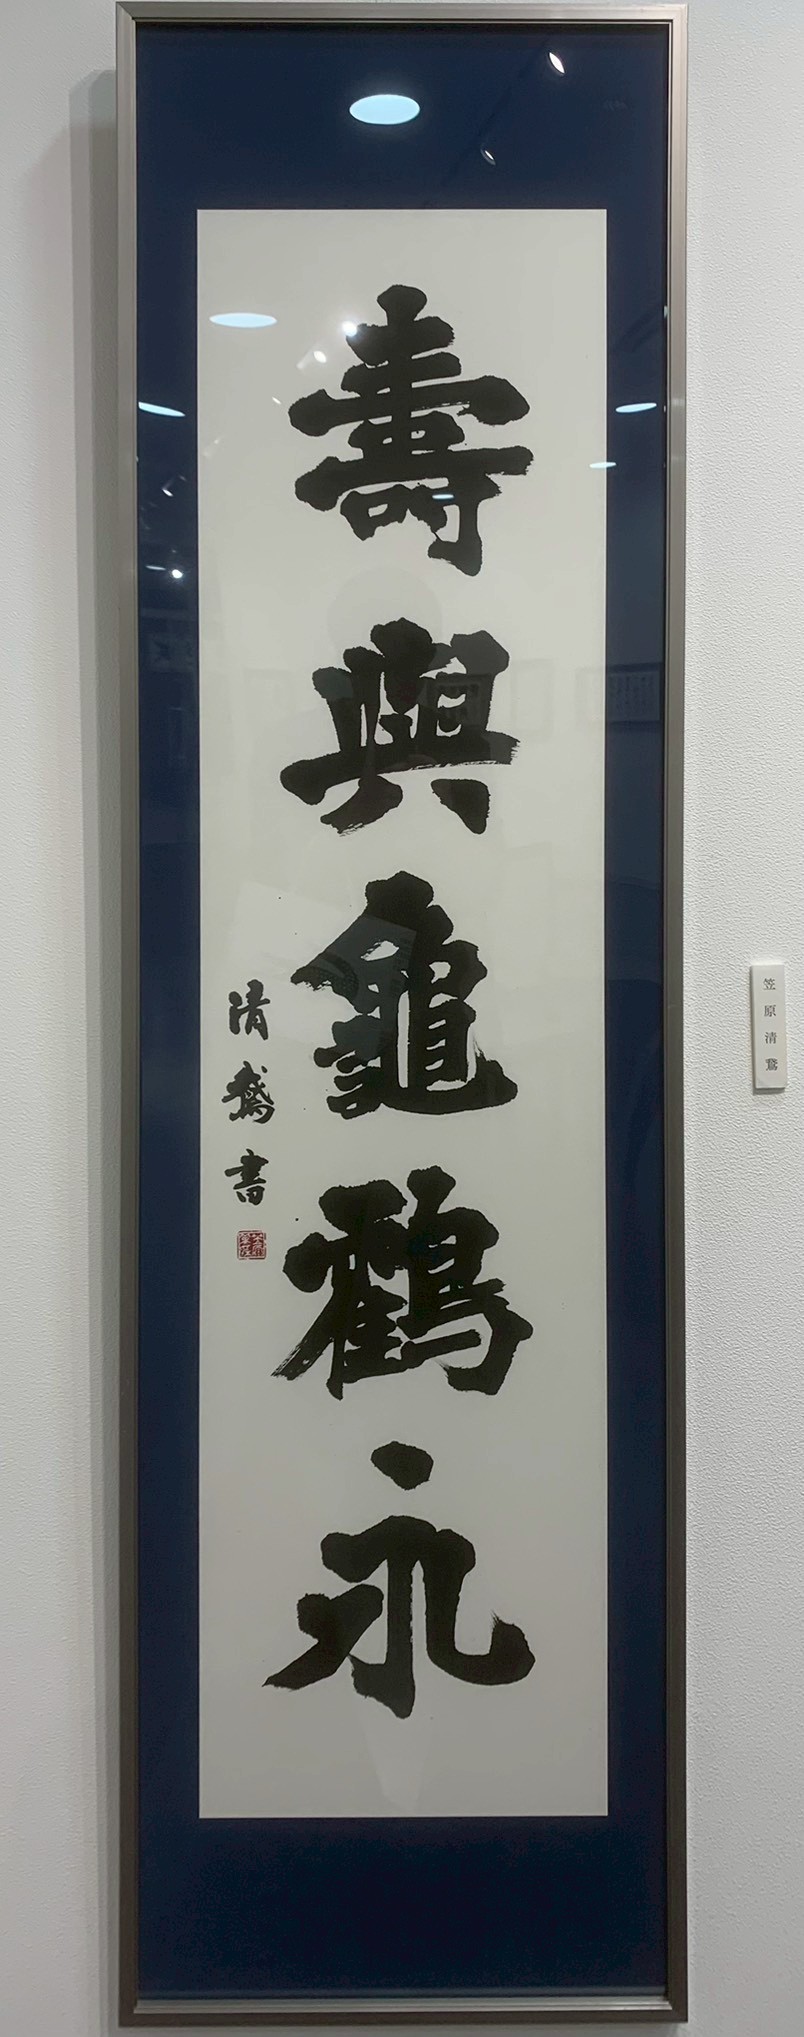 壽與龜鶴永
清鵞書
笠原清鵞